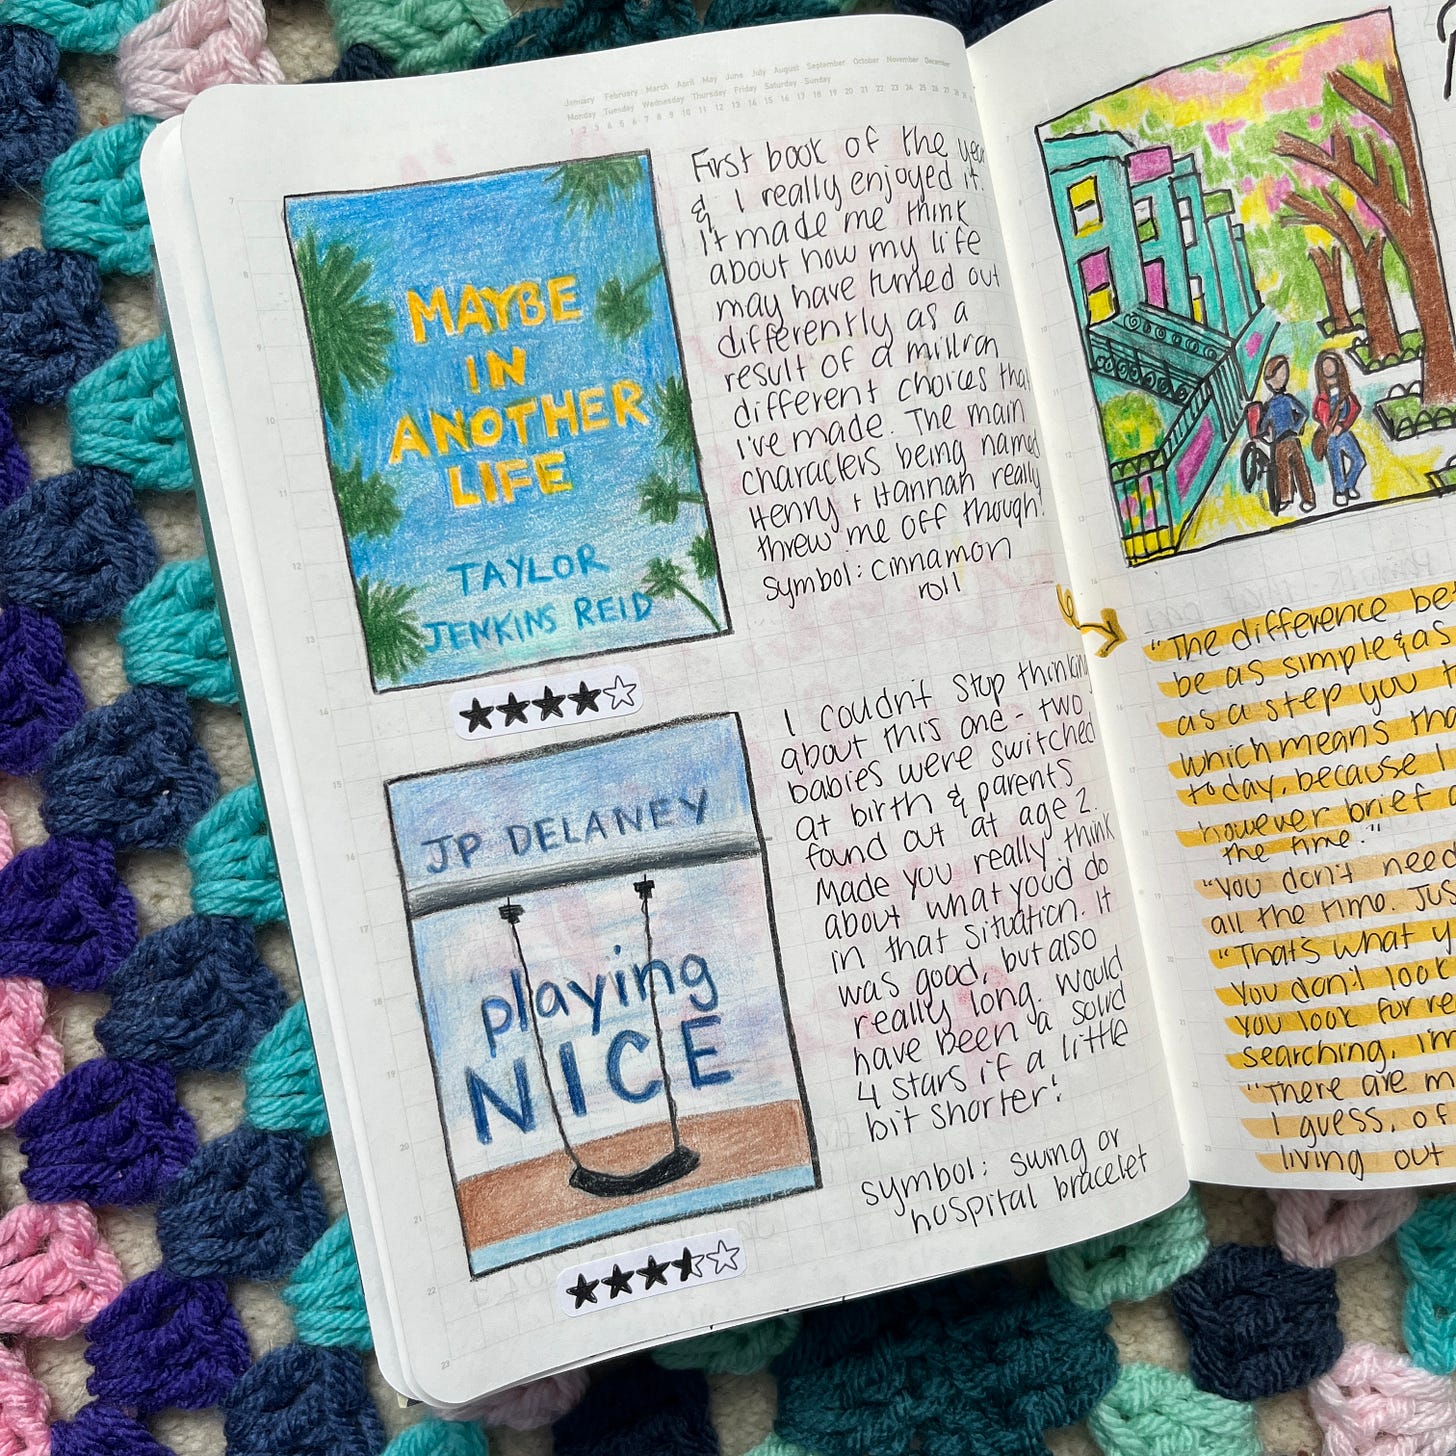 January February March April May June July August September October November December
Monday Tuesday Wednesday Thursday Friday Saturday Sunday
1 2 3 4 5 6 7 8 9 10 11 12 13 14 15 16 17 18 19 20 21 22 23 24 25 26 27 28
MAYBE
IN
ANOTHER
LIFE
TAYLOR
JENKINS REID
First book of the year
& I really enjoyed it!
It made me think
about how my life
may have turned out
differently as a
result of a million
different choices that
I've made. The main
characters being named
Henry + Hannah really
threw me off though!
Symbol: cinnamon
roll
JP DELANEY
playing
NICE
I couldn't stop thinking
about this one - two
babies were switched
at birth & parents
found out at age 2.
Made you really think
about what you'd do
in that situation. It
was good, but also
really long. Would
have been a solid
4 stars if a little
bit shorter!
symbol: swing or
hospital bracelet
"The difference be
be as simple & as
as a step you t
which means tha
today, because I
however brief a
the time."
"You don't need
all the time. Jus
"That's what y
You don't look
you look for re
searching, im
"There are m
I guess, of
living out
7
8
9
10
11
12
13
14
15
16
17
18
19
20
21
22
23